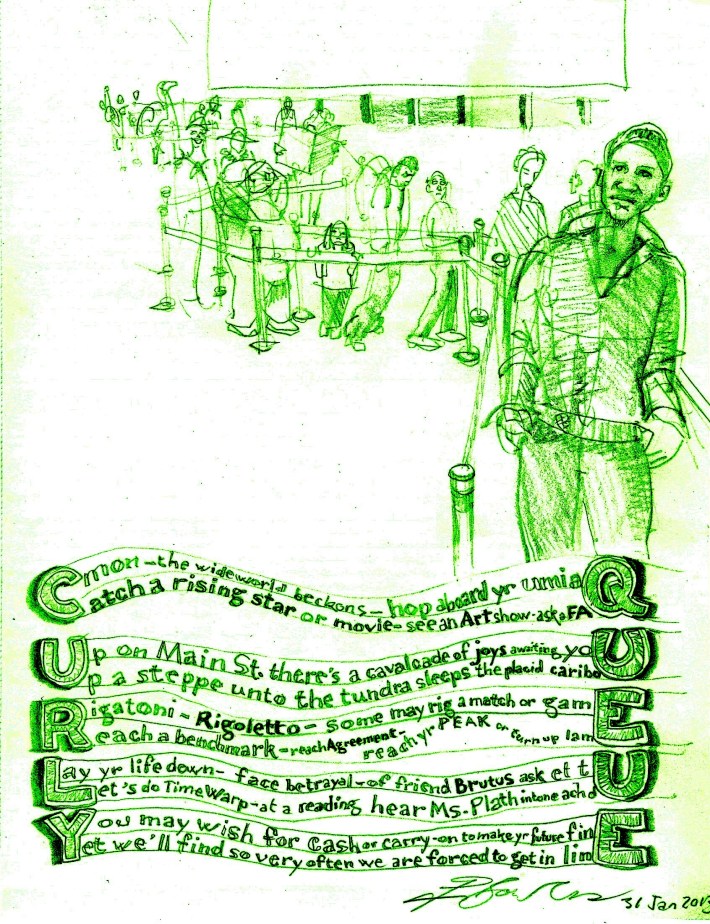 Cmon–the wide world beckons–hop aboard yr umiaQ
Catch a rising star or movie–see an Art show–ask a FAQ
Up on Main St. there's a cavalcade of joys awaiting yoU
Up a steppe unto the tundra sleeps the placid cariboU
Rigatoni – Rigoletto – some may rig a match or gamE
Reach a benchmark–reach Agreement–reach yr PEAK or turn up lamE
Lay yr life down– face betrayal–of friend Brutus ask et tU
Let's do Time Warp–at a reading hear Ms. Plath intone ach dU
You may wish for Cash or carry-on to make yr future finE
Yet we'll find so very often we are forced to get in linE
31 Jan 2013